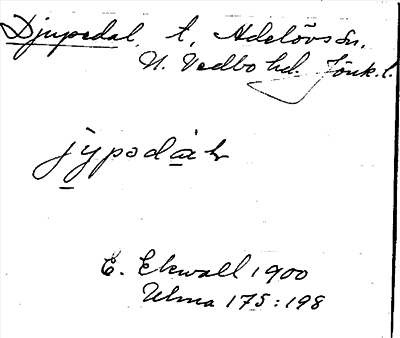 Djupedal, t, Adelövs sn.
N. Vedbo hd. Jönk.l.
jypədal
E. Ekwall 1900
Ulma 175:198